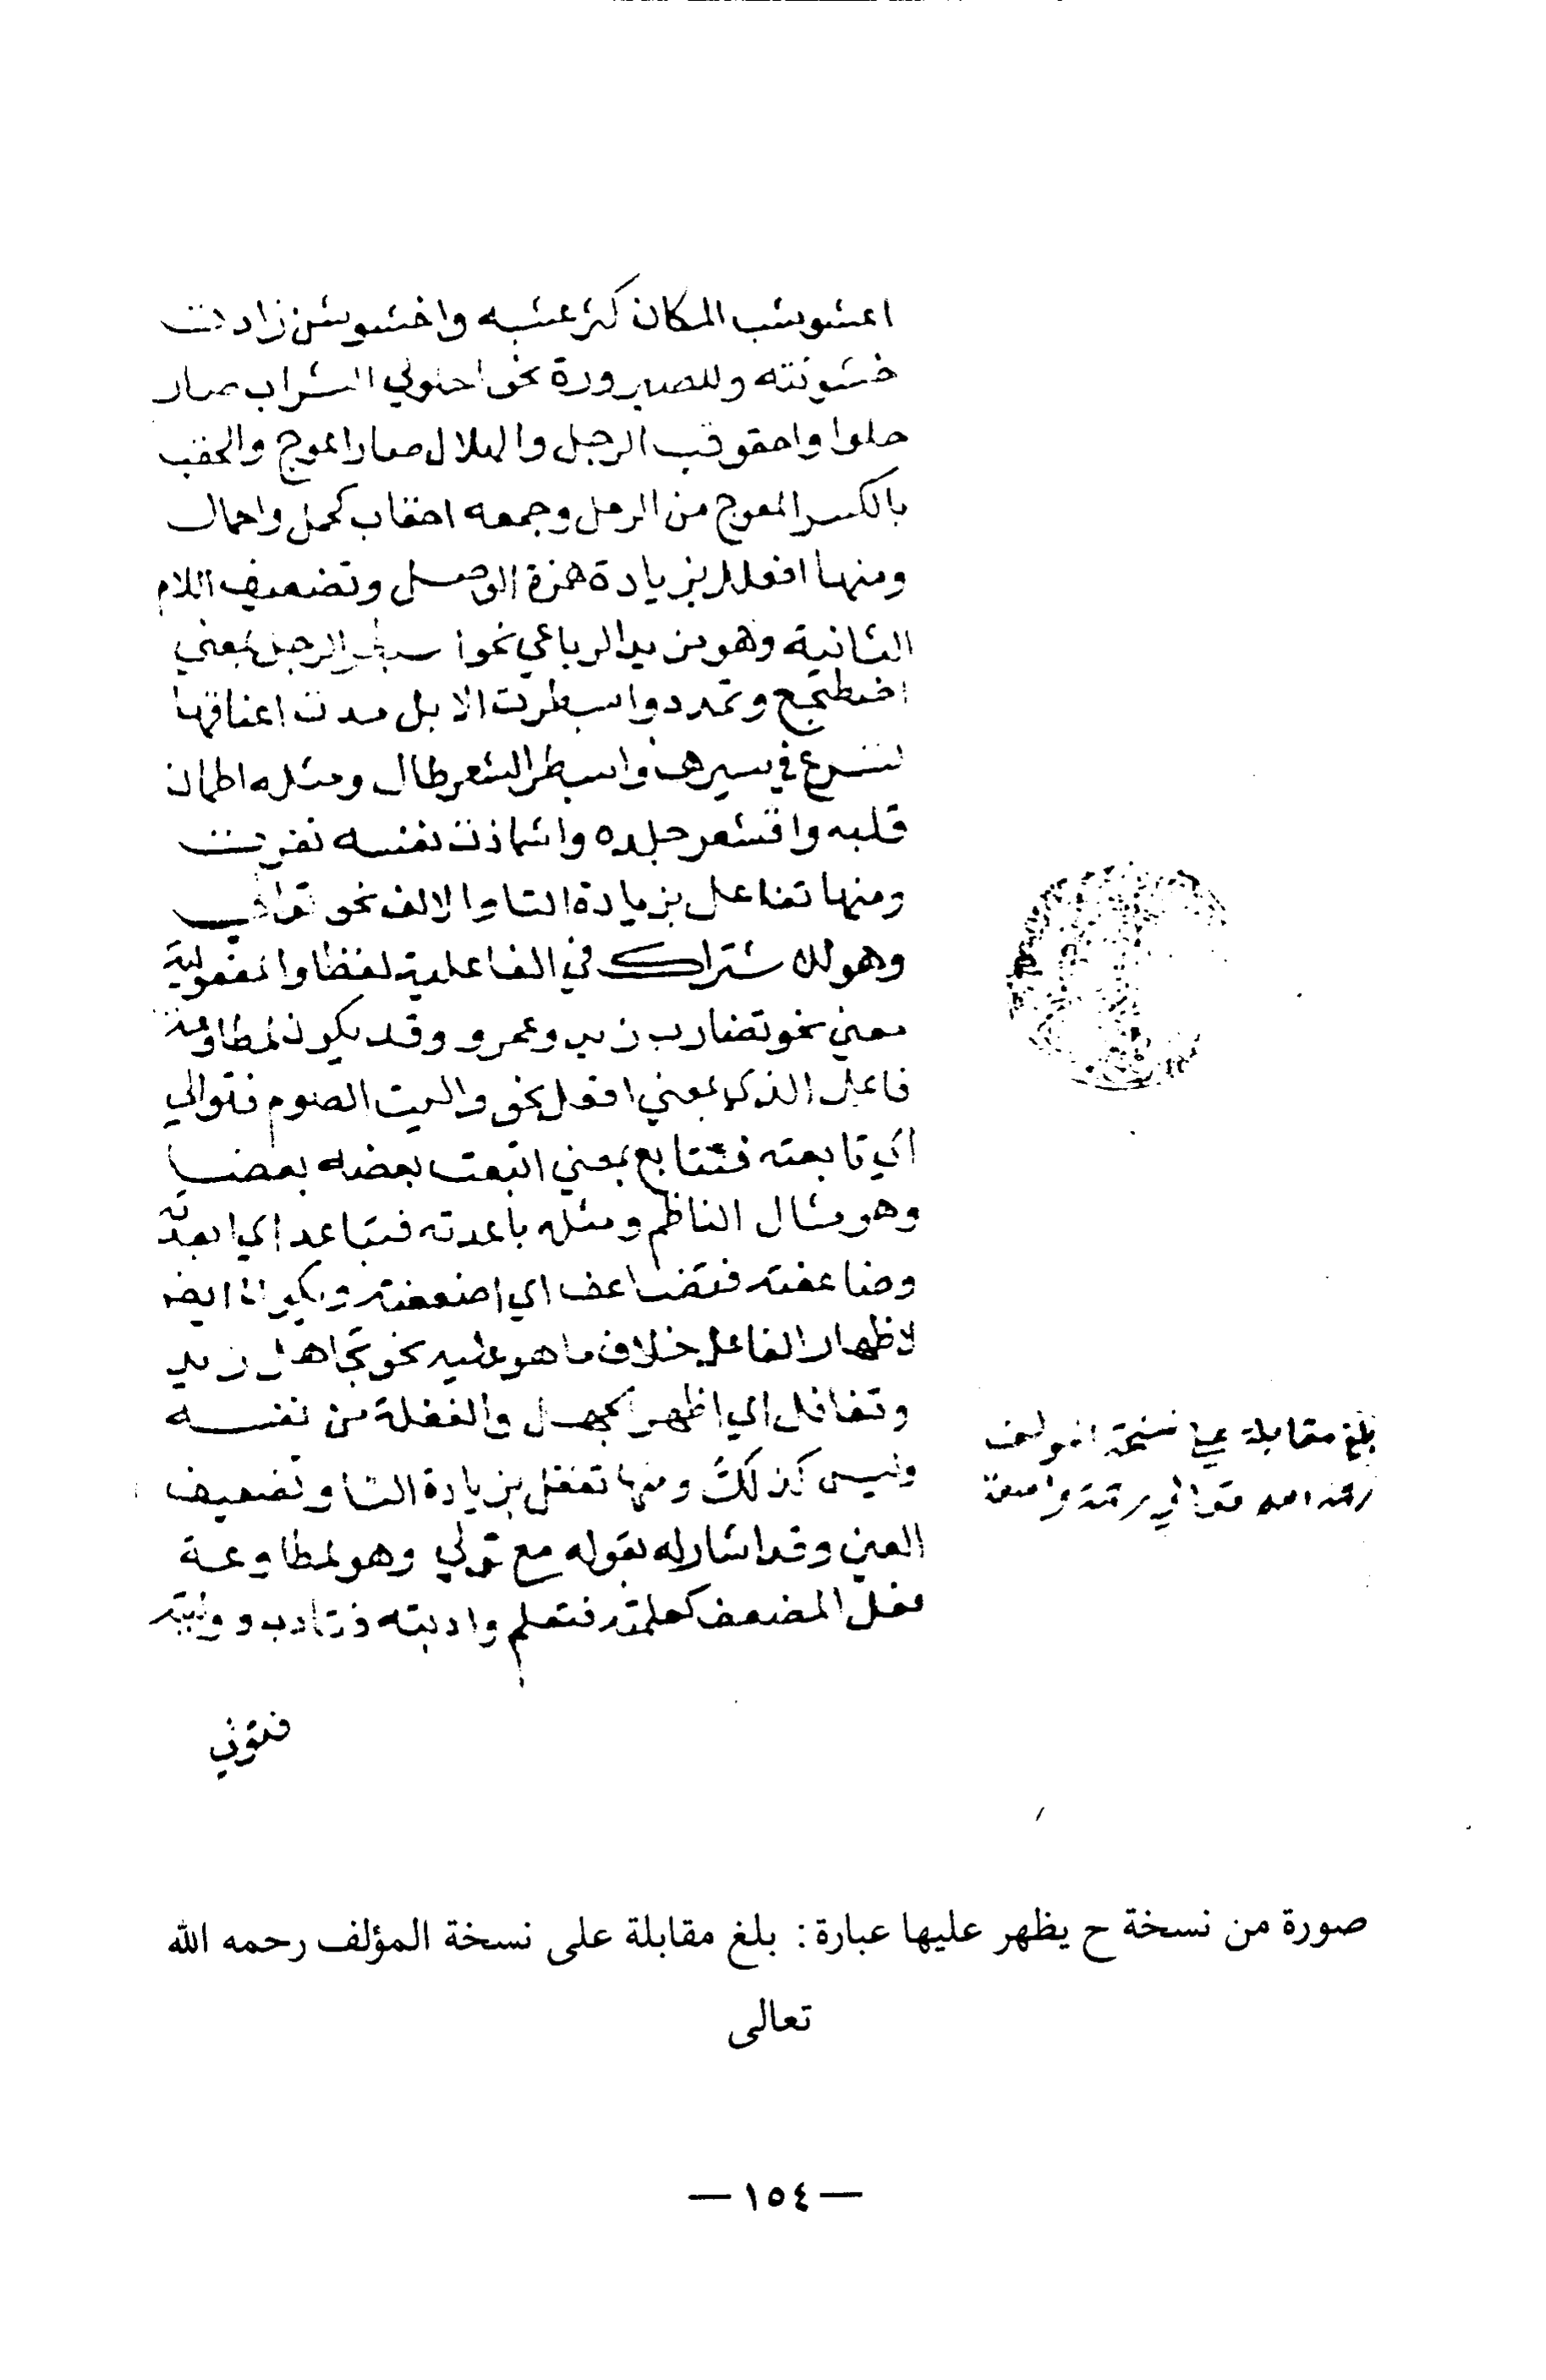 اعشوشب المكان كثر عشبه واخشوشن زادت
خشونته وللصيرورة نحو احلولي الشراب صار
حلوا واحقوقب الرجل والهلال صار اعوج والحقب
بالكسر المعوج من الرمل وجمعه احقاب كحمل واحمال
ومنها افعلل بزيادة همزة الوصل وتضعيف اللام
الثانية وهو مزيد الرباعي نحو اسبطر الرجل بمعني
اضطجع وتمدد واسبطرت الابل مدت اعناقها
لتسرع في سيرها واسبطر الشعر طال ومثله اطمان
قلبه واقشعر جلده واشمازت نفسه نفرت
ومنها تفاعل بزيادة التا والالف نحو توالي
وهو للاشتراك في الفاعلية لفظا والمفعولية
معني نحو تضارب زيد وعمرو وقد يكون لمطاوعة
فاعل الذي بمعني افعل نحو واليت الصوم فتوالي
اي تابعته فتتابع بمعني اتبعت بعضه بعضا
وهو مثال الناظم ومثله باعدته فتباعد اي ابعدته
وضاعفته فتضاعف اي اضعفته ويكون ايضا
لاظهار الفاعل خلاف ما هو عليه نحو تجاهل زيد
وتغافل اي اظهر الجهل والغفلة من نفسه
وليس كذلك ومنها تفعل بزيادة التا وتضعيف
العين وقد اشار له بقوله مع تولي وهو لمطاوعة
فعل المضعف كعلمته فتعلم وادبته فتادب ووليته
فتولي
بلغ مقابلة علي نسخة المولف
رحمه الله تعالي رحمة واسعة
صورة من نسخة ح يظهر عليها عبارة: بلغ مقابلة على نسخة المؤلف رحمه الله
تعالى
— ١٥٤ —